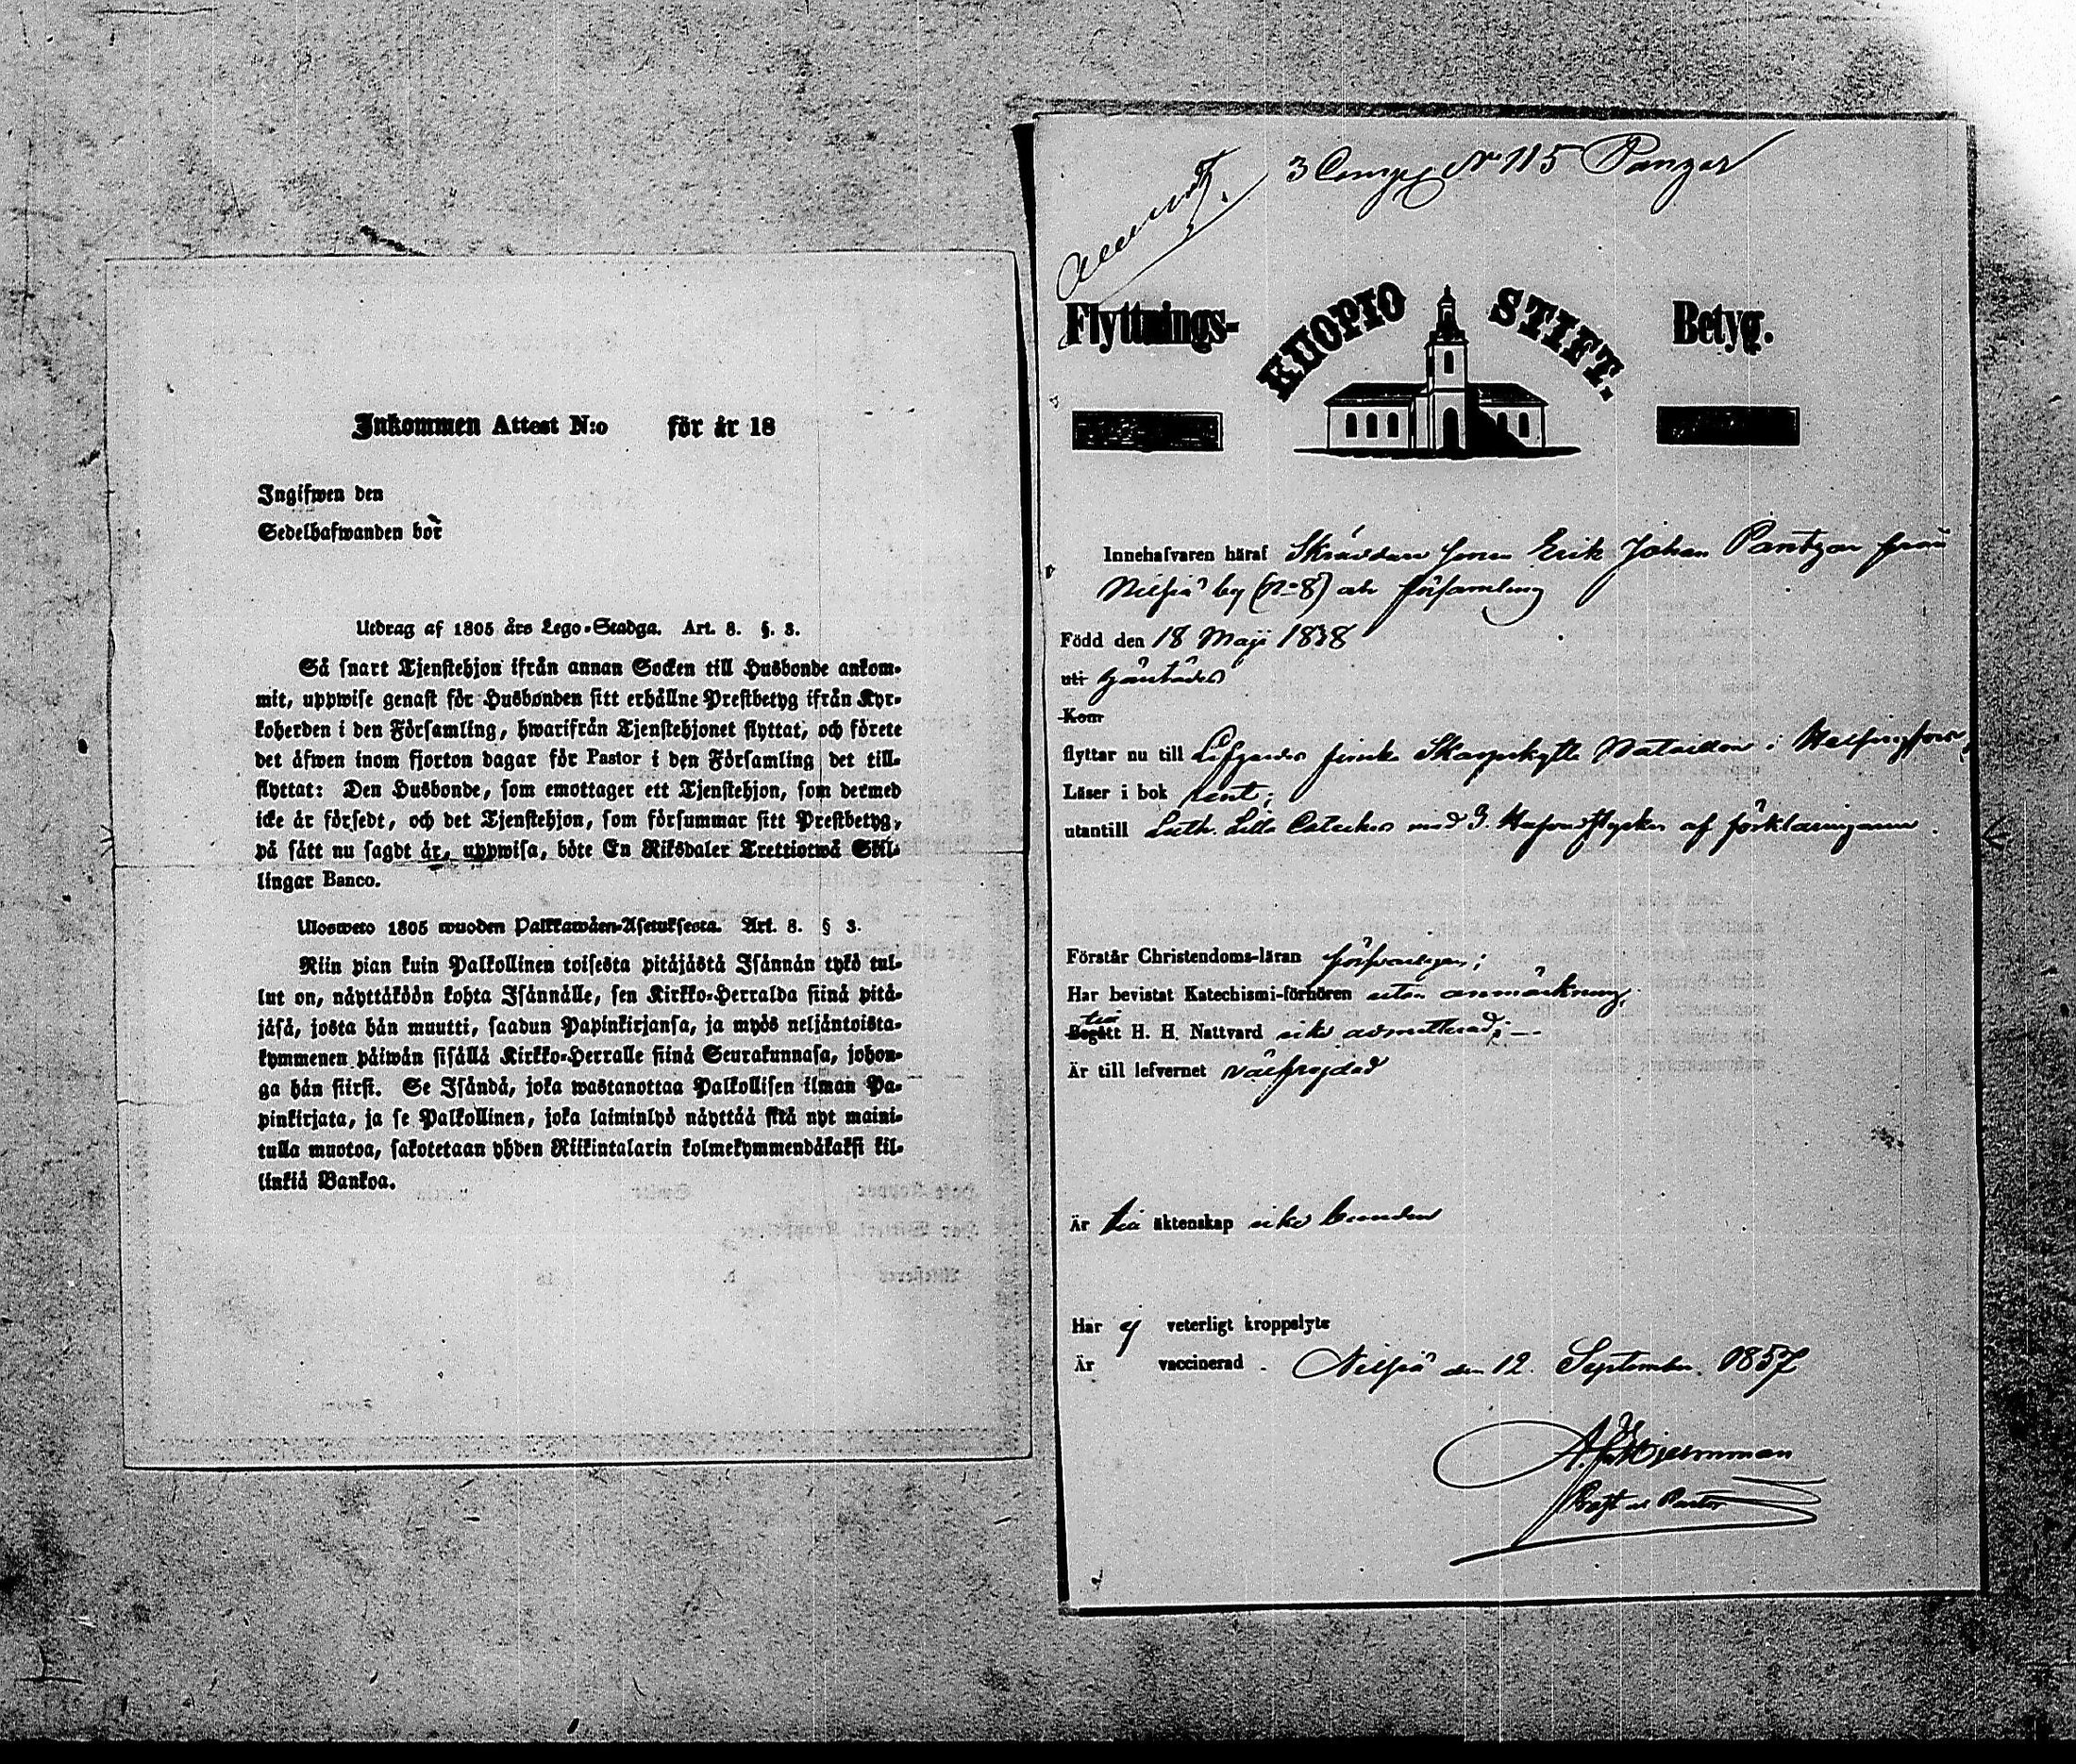 Inkommen Attest N:o för år 18
Ingifwen den
Sedelhafwanden bor
Utdrag af 1805 års Lego-Stadga. Art. 8. §. 3.
Så snart Tjenstehjon ifrån annan Socken till Husbonde ankom-
mit, uppwise genast för Husbonden sitt erhållne Prestbetyg ifrån Kyr-
koherden i den Församling, hwarifrån Tjenstehjonet flyttat, och förete
det åfwen inom fjorton dagar för Pastor i den Församling det till-
flyttat: Den Husbonde, som emottager ett Tjenstehjon, som dermed
icke år försedt, och det Tjenstehjon, som försummar sitt Prestbetyg,
på sått nu sagdt år, uppwisa, böte En Riksdaler Trettiotwå Skil-
lingar Banco.
Uloswето 1805 wuoden Palkkawåen-Asetuksesta. Art. 8. § 3.
Niin pian kuin Palkollinen toisesta pitåjåstå Isånnån tykö tul-
lut on, nåyttåköön kohta Isånnålle, sen Kirkko-Herralda siinå pitå-
jåså, josta hån muutti, saadun Papinkirjansa, ja myös neljåntoista-
kymmenen påiwån sisållå Kirkko-Herralle siinå Seurakunnasa, johon-
ga hån siirsi. Se Isåndå, joka wastanottaa Palkollisen ilman Pa-
pinkirjata, ja se Palkollinen, joka laiminlyö nåyttåå sitå nyt maini-
tulla muotoa, sakotetaan yhden Riikintalarin kolmekymmendåkaksi kil-
linkiå Bankoa.
3 Comp N 115 Panzar
Flyttnings- KUOPIO STIFT. Betyg.
Innehafvaren häraf Skräddare sonen Erik Johan Pantzar från
Nilsiä by (N=8) och församling
Född den 18 Maji 1838
uti
Kom
flyttar nu till Lifgardes finska Skarpskytte Bataillon i Helsingfors,
Läser i bok rent;
utantill Luth. Lilla Cateches med 3. Hufvudstycken af förklaringarne.
Förstår Christendoms-läran försvarligen;
Har bevistat Katechismi-förhören utan anmärkning,
Begått till H. H. Nattvard icke admitterad;
Är till lefvernet välfrejdad
Är till äktenskap icke bunden
Har ej veterligt kroppslyte
Är vaccinerad. Nilsiä den 12. September. 1857
Prost och Pastor